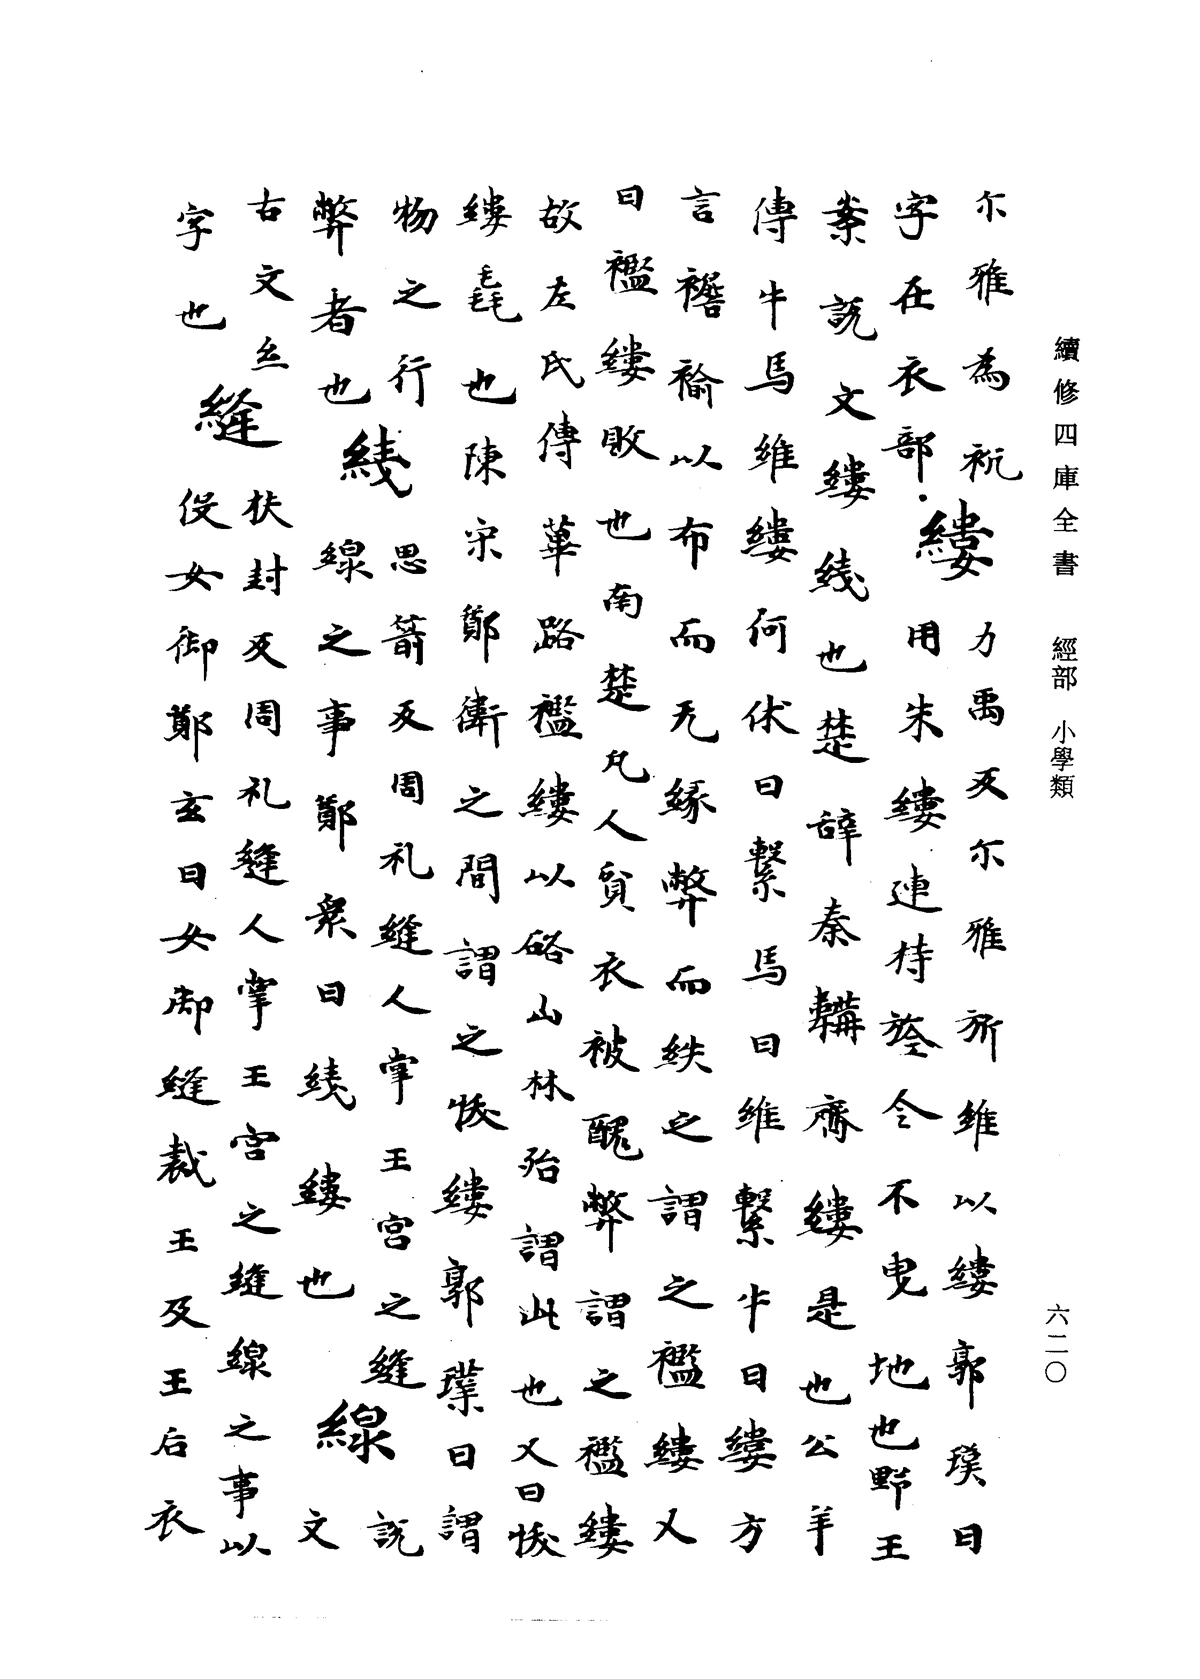 續修四庫全書 經部 小學類
六二〇
尒雅為䘫
字在衣部
縷
力禹反尒雅所維以縷郭璞曰
用朱縷連持旍令不曳地也野王
案說文縷綫也楚辭秦韝齊縷是也公羊
傳牛馬維縷何休曰繫馬曰維繫牛曰縷方
言襜褕以布而无緣弊而紩之謂之襤縷又
曰襤縷敗也南楚凡人貧衣被醜弊謂之襤縷
故左氏傳蓽路襤縷以啓山林殆謂此也又曰㥄
縷毳也陳宋鄭衛之間謂之㥄縷郭璞曰謂
物之行
弊者也
綫
思箭反周礼縫人掌王宮之縫
線之事鄭衆曰綫縷也
線
說
文
古文糸
字也
縫
扶封反周礼縫人掌王宮之縫線之事以
役女御鄭玄曰女御縫裁王及王后衣